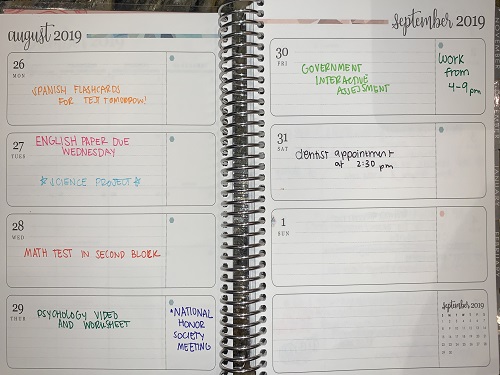 august 2019
26
MON
SPANISH FLASHCARDS
FOR TEST TOMORROW!
27
TUES
ENGLISH PAPER DUE
WEDNESDAY
SCIENCE PROJECT
28
WED
MATH TEST IN SECOND BLOCK
29
THUR
PSYCHOLOGY VIDEO
AND WORKSHEET
*NATIONAL
HONOR
SOCIETY
MEETING
september 2019
30
FRI
GOVERNMENT
INTERACTIVE
ASSESSMENT
work
from
4-9 pm
31
SAT
dentist appointment
at 2:30 pm
1
SUN
september 2019